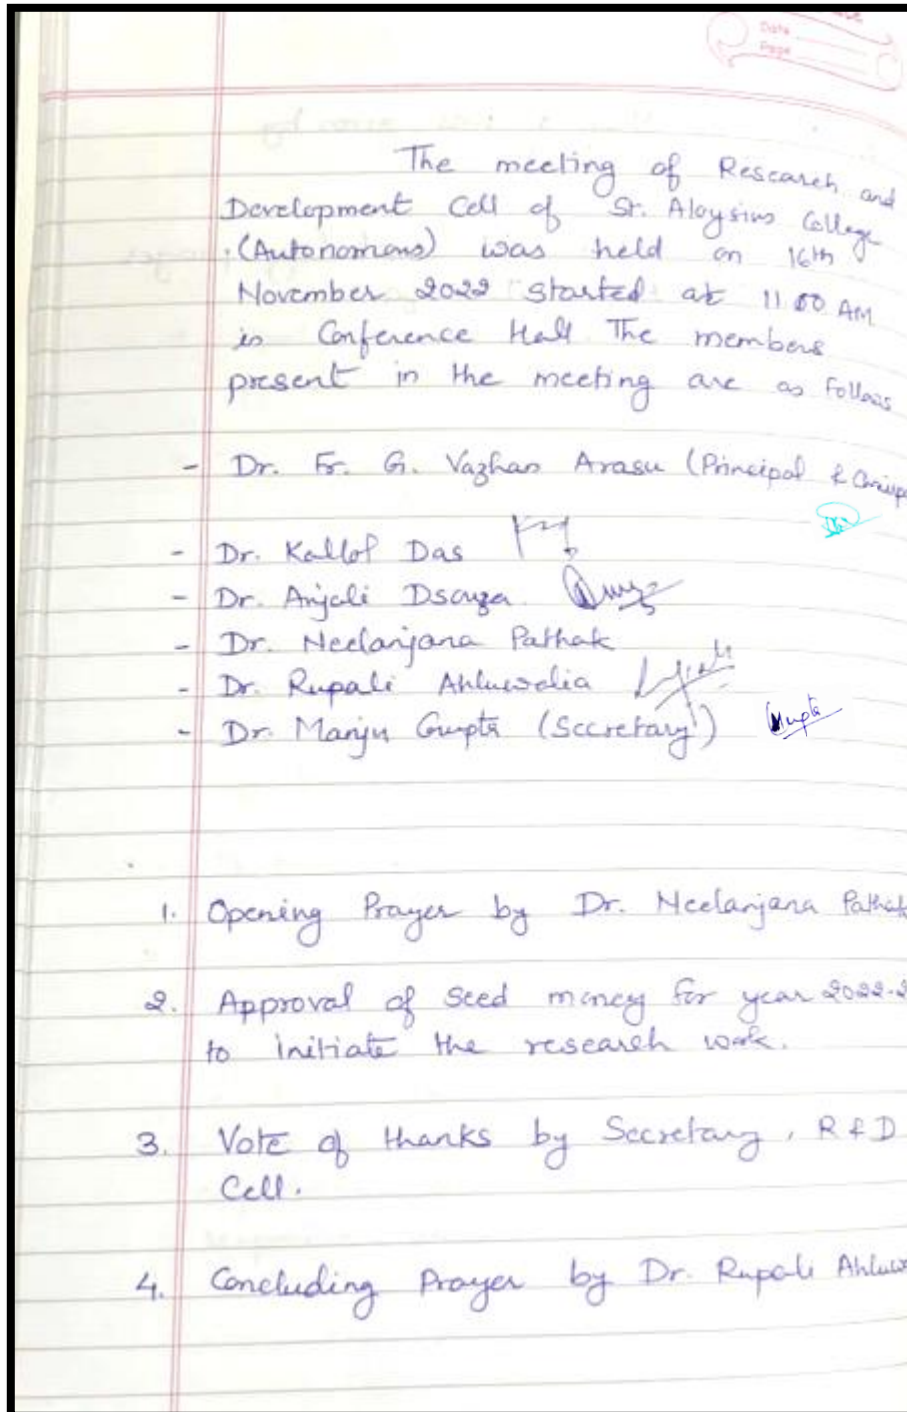 Date
Page
The meeting of Research and
Development Cell of St. Aloysius College
(Autonomous) was held on 16th
November 2022 started at 11.00 AM
in Conference Hall The members
present in the meeting are as follows
- Dr. Fr. G. Vazhan Arasu (Principal &
- Dr. Kallol Das
- Dr. Anjali Dsouza
- Dr. Neelanjana Pathak
- Dr. Rupali Ahluwalia
- Dr. Manju Gupta (Secretary) Gupta
1. Opening Prayer by Dr. Neelanjana Pathak
2. Approval of seed money for year 2022-2
to initiate the research work.
3. Vote of thanks by Secretary, R & D
Cell.
4. Concluding Prayer by Dr. Rupali Ahluw